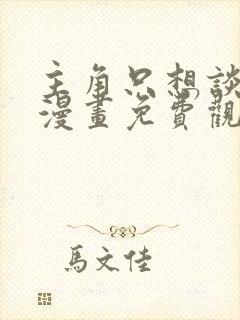 主角只想談
漫畫免費觀
馬文佳